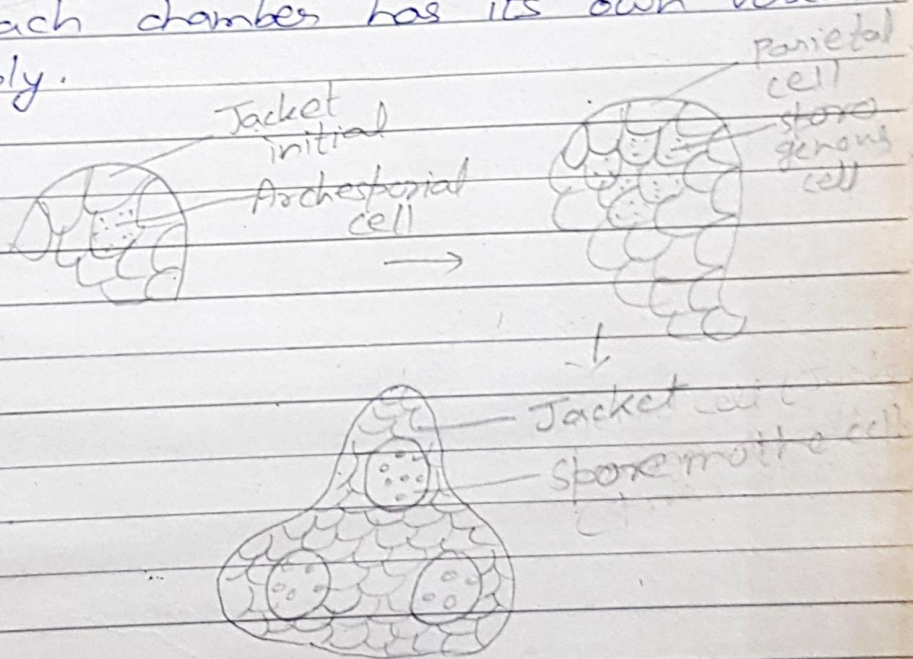 ach chamber has its own
ply.
Jacket
initial
Archesporial
cell
Parietal
cell
sporo
genous
cell
Jacket cell
Spore mothe cell